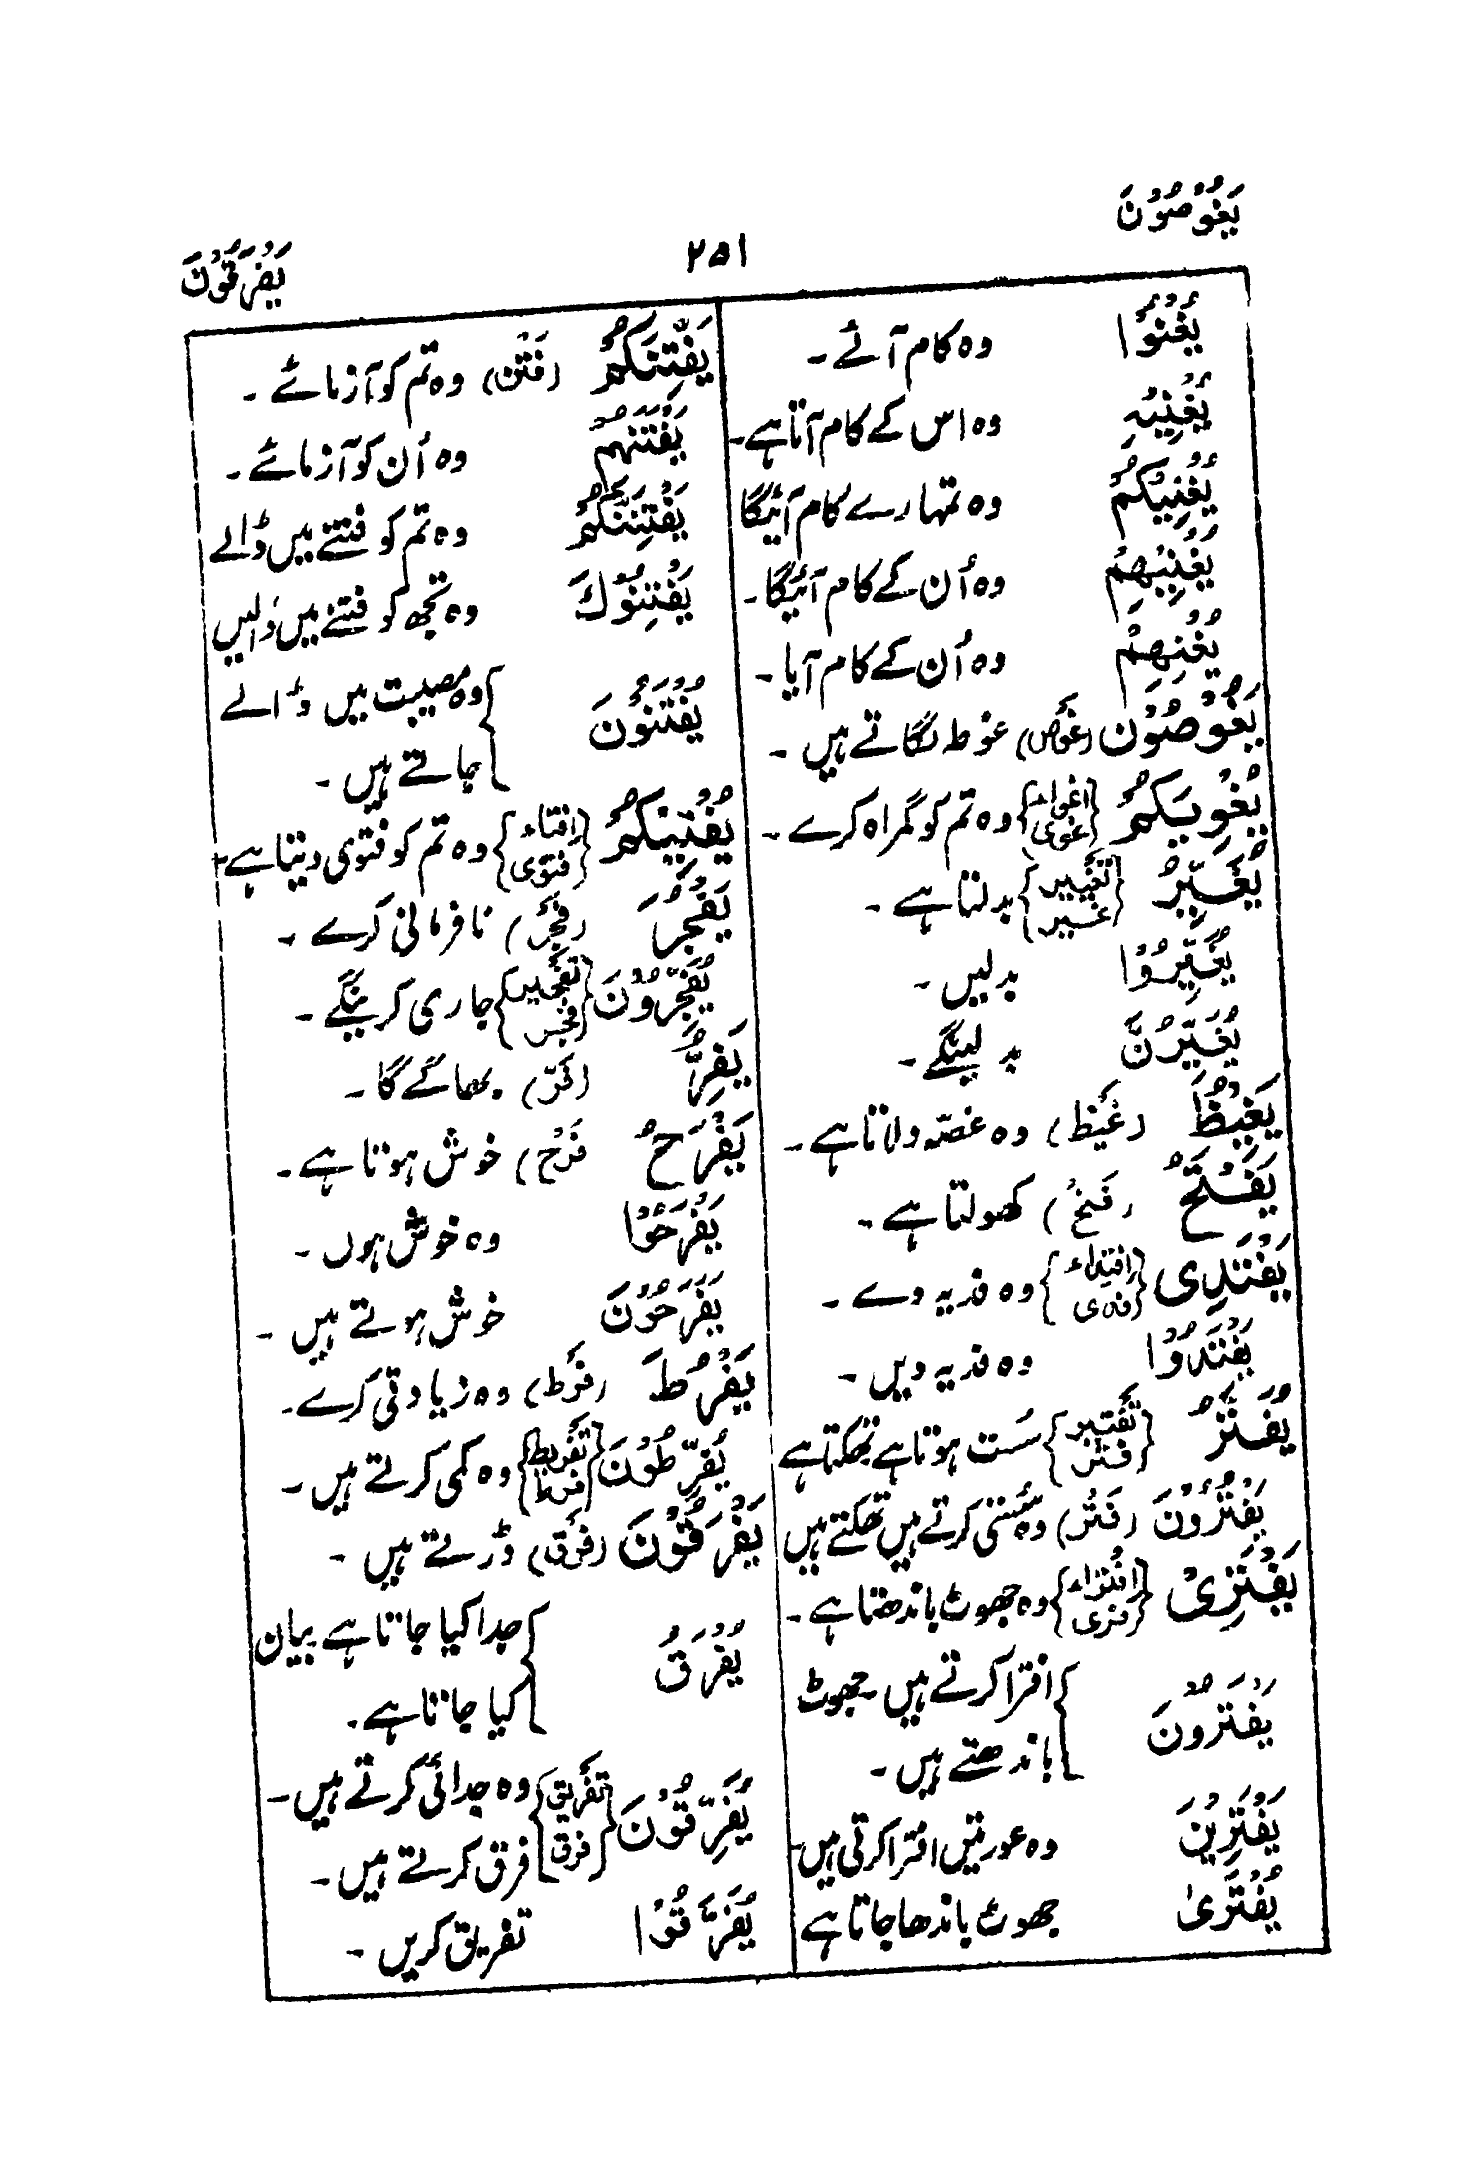 یَغُوْصُوْنَ
۲۵۱
یَفْرَقُوْنَ
یُغْنُوْا وہ کام آئے۔
یُغْنِیْہِ وہ اس کے کام آتا ہے۔
یُغْنِیْکُمْ وہ تمہارے کام آئیگا
یُغْنِیْہِمْ وہ اُن کے کام آئیگا۔
یُغْنِہِمْ وہ اُن کے کام آیا۔
یَغُوْصُوْن (غَوْص) غوطہ لگاتے ہیں۔
یُغْوِیَکُمْ {اغواء غوی} وہ تم کو گمراہ کرے۔
یُغَیِّرُ {تغییر غیر} بدلتا ہے۔
یُغَیِّرُوْا بدلیں۔
یُغَیِّرُنَّ بدلینگے۔
یَغِیْظُ (غَیْظ) وہ غصّہ دلاتا ہے۔
یَفْتَحُ (فتح) کھولتا ہے۔
یَفْتَدِی {افتداء فدی} وہ فدیہ دے۔
یَفْتَدُوْا وہ فدیہ دیں۔
یُفَتَّرُ {تفتیر فتر} سُست ہوتا ہے تھکتا ہے
یَفْتُرُوْنَ (فتر) وہ سُستی کرتے ہیں تھکتے ہیں
یَفْتَرِیْ {افتراء فری} وہ جھوٹ باندھتا ہے۔
یَفْتَرُوْنَ افترا کرتے ہیں۔ جھوٹ
باندھتے ہیں۔
یَفْتَرِیْنَ وہ عورتیں افترا کرتی ہیں۔
یُفْتَرٰی جھوٹ باندھا جاتا ہے
یَفْتِنَکُمْ (فَتْن) وہ تم کو آزمائے۔
یَفْتِنَہُمْ وہ اُن کو آزمائے۔
یَفْتِنَنَّکُمْ وہ تم کو فتنے میں ڈالے
یَفْتِنُوْکَ وہ تجھ کو فتنے میں ڈالیں
یُفْتَنُوْنَ وہ مصیبت میں ڈالے
جاتے ہیں۔
یُفْتِیْکُمْ {افتاء فتوی} وہ تم کو فتوی دیتا ہے۔
یَفْجُرَ (فجر) نافرمانی کرے۔
یُفَجِّرُوْنَ {تفجیر فجر} جاری کرینگے۔
یَفِرُّ (فَرّ) بھاگے گا۔
یَفْرَحُ (فرح) خوش ہوتا ہے۔
یَفْرَحُوْا وہ خوش ہوں۔
یَفْرَحُوْنَ خوش ہوتے ہیں۔
یَفْرُطَ (فرط) وہ زیادتی کرے۔
یُفَرِّطُوْنَ {تفریط فرط} وہ کمی کرتے ہیں۔
یَفْرَقُوْنَ (فرق) ڈرتے ہیں۔
یُفْرَقُ جدا کیا جاتا ہے بیان
کیا جاتا ہے۔
یُفَرِّقُوْنَ {تفریق فرق} وہ جدائی کرتے ہیں۔
فرق کرتے ہیں۔
یُفَرِّقُوْا تفریق کریں۔